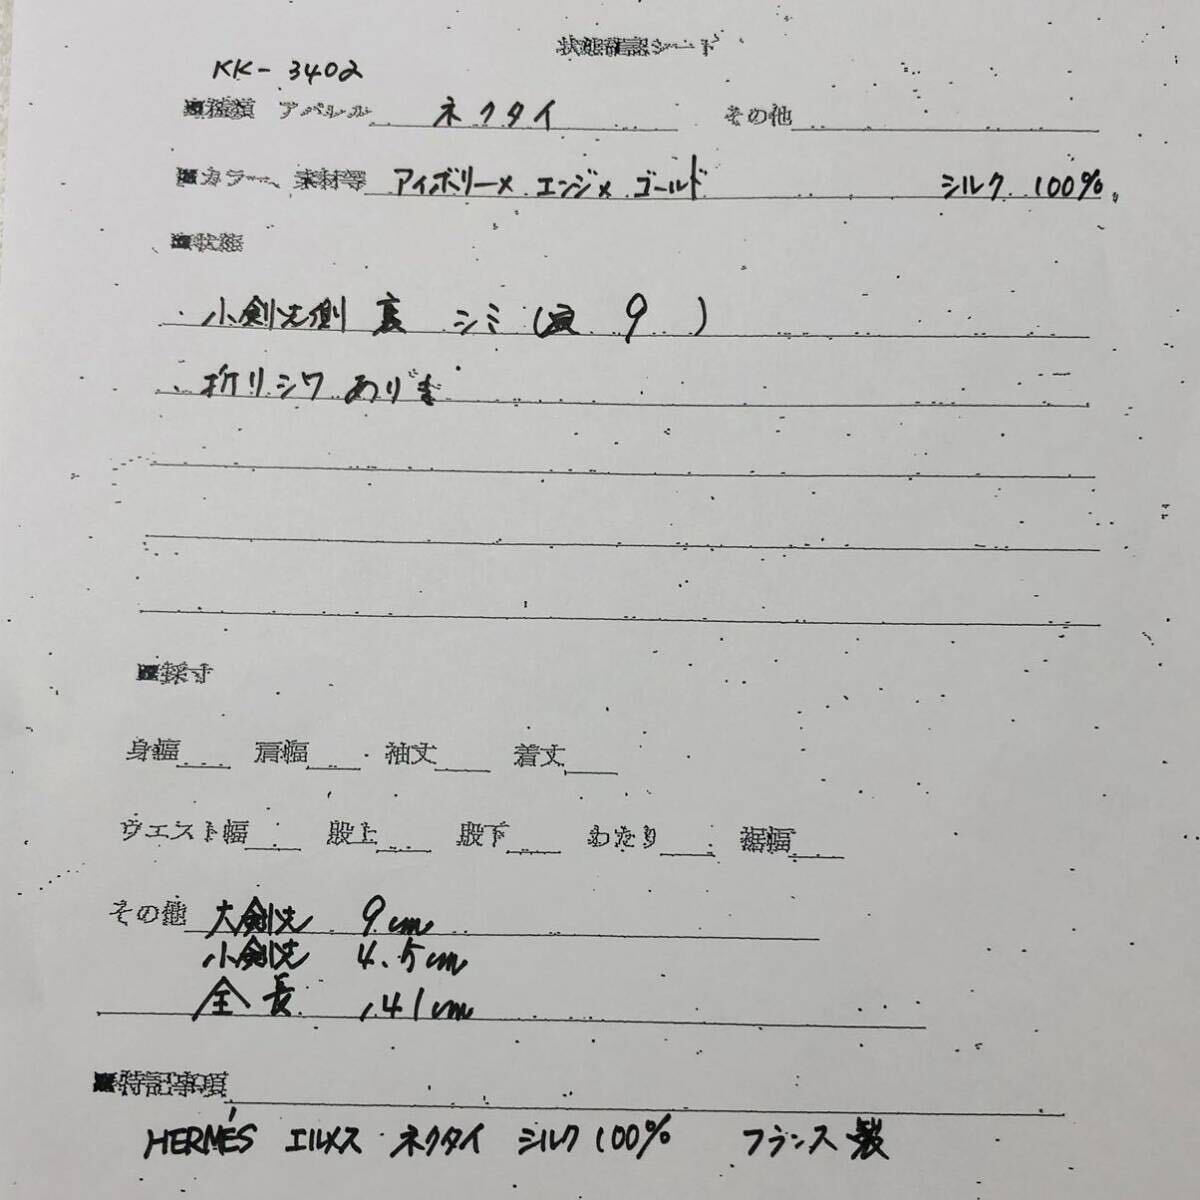 状態確認シート
KK-3402
■種類 アパレル ネクタイ その他
■カラー、素材等 アイボリー× エンジ× ゴールド シルク 100%。
■状態
・小剣先側 裏 シミ ( 9 )
・折りシワ あります
■採寸
身幅 肩幅 袖丈 着丈
ウエスト幅 股上 股下 わたり 裾幅
その他 大剣先 9cm
小剣先 4.5cm
全長 141cm
■特記事項
HERMÉS エルメス ネクタイ シルク100% フランス製